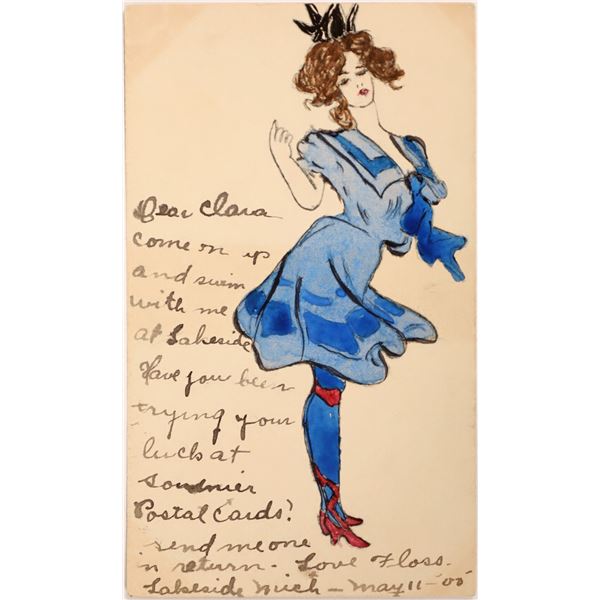 Dear Clara
come on up
and swim
with me
at Lakeside
Have you been
trying your
luck at
Postal Cards?
send me one
in return - Love Floss.
Lakeside Mich - May 11-